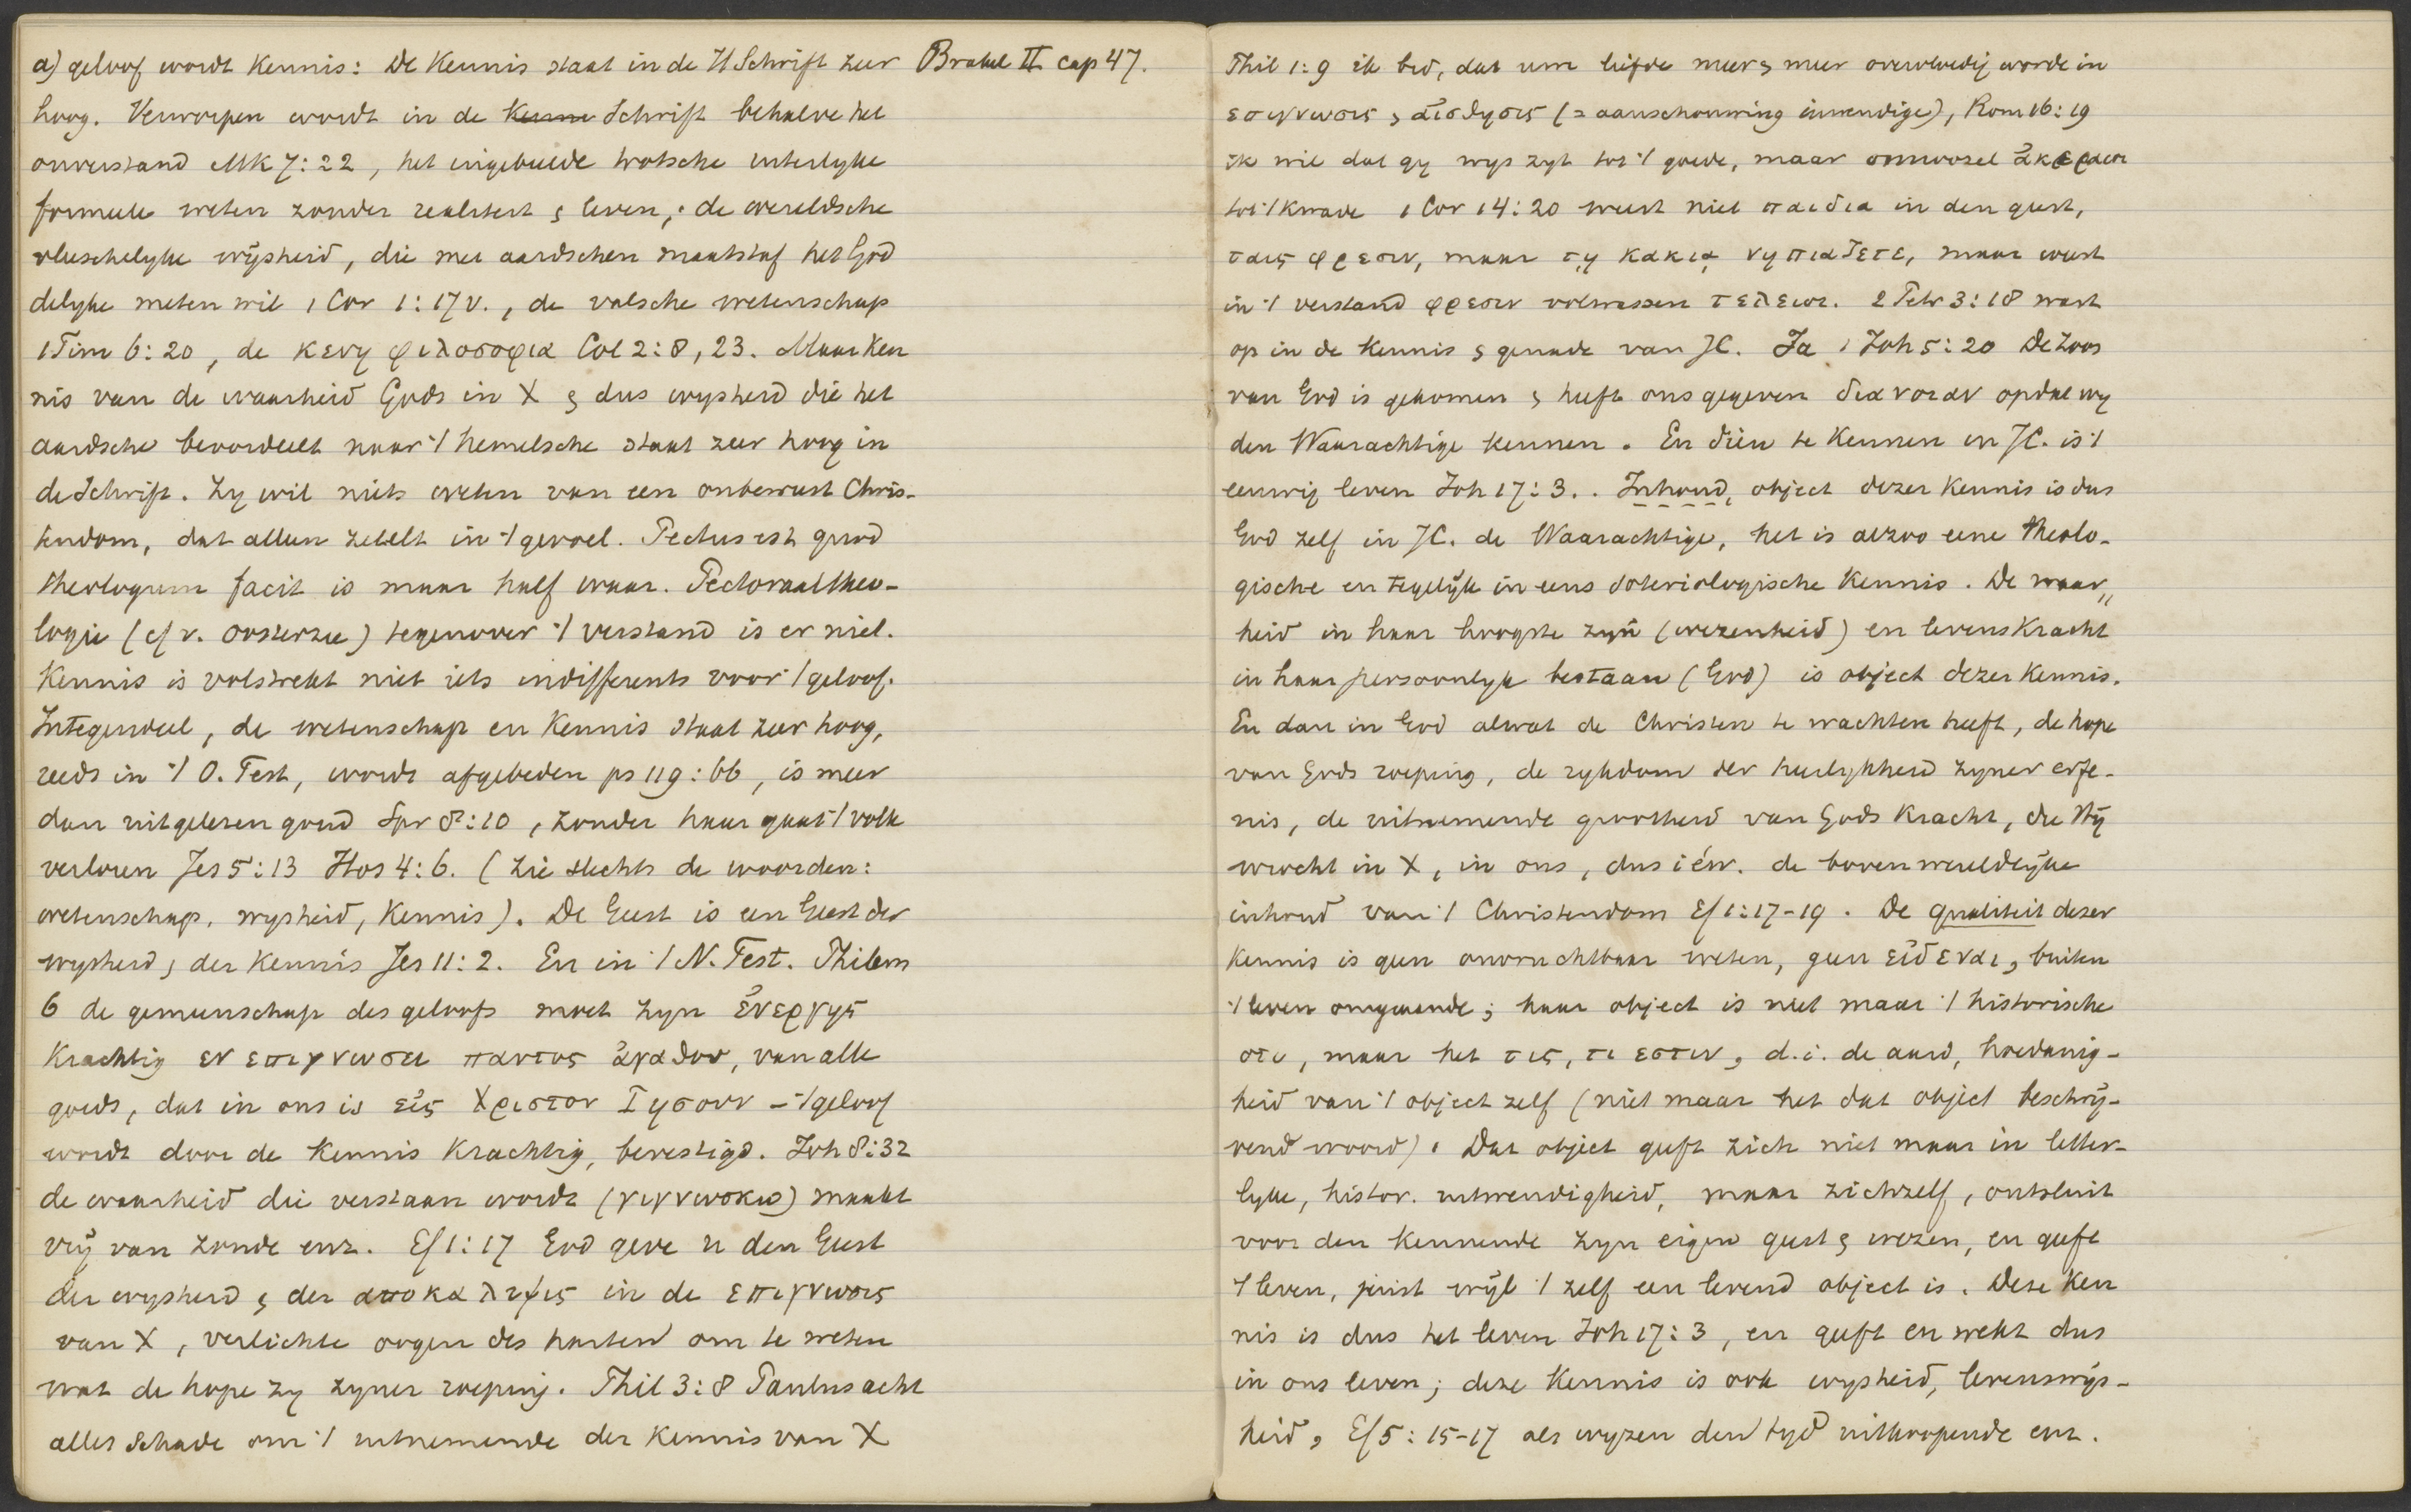 a) geloof wordt kennis: De Kennis staat in de H Schrift zeer
Brakel II cap 47.
hoog. Verworpen wordt in de Kenni Schrift behalve het
onverstand Mk 7:22, het ingebeelde trotsche uiterlyke
formeele weten zonder realiteit & leven; de wereldsche
vleeschelyke wijsheid, die met aardschen maatstaf het God
delyke meten wil 1 Cor 1:17 v., de valsche wetenschap
1 Tim 6:20, de κενη φιλοσοφια Col 2:8, 23. Maar Ken
nis van de waarheid Gods in X & dus wysheid die het
aardsche beoordeelt naar 't hemelsche staat zeer hoog in
de Schrift. Zy wil niets weten van een onbewust Chris-
tendom, dat alleen zetelt in 't gevoel. Pectus est quod
theologum facit is maar half waar. Pectoraaltheo-
logie (cf v. Oosterzee) tegenover 't verstand is er niet.
Kennis is volstrekt niet iets indifferents voor 't geloof.
Integendeel, de wetenschap en Kennis staat zeer hoog,
reeds in 't O. Test, wordt afgebeden ps 119:66, is meer
dan uitgelezen goud Spr 8:10, zonder haar gaat 't volk
verloren Jes 5:13 Hos 4:6. (zie slechts de woorden:
wetenschap, wysheid, Kennis). De Geest is een Geest der
wysheid & der Kennis Jes 11:2. En in 't N. Test. Philem
6 de gemeenschap des geloofs moet zyn ἐνεργης
Krachtig εν επιγνωσει παντος ἀγαθου, van alle
goeds, dat in ons is εἰς Χριστον Ιησουν – 't geloof
wordt door de Kennis Krachtig, bevestigd. Joh 8:32
de waarheid die verstaan wordt (γιγνωσκω) maakt
vrij van zonde enz. Ef 1:17 God geve u den Geest
der wysheid & der αποκαλυψις in de επιγνωσις
van X, verlichte oogen des harten om te weten
wat de hope zy zyner roeping. Phil 3:8 Paulus acht
alles schade om 't uitnemende der Kennis van X
Phil 1:9 ik bid, dat uw liefde meer & meer overvloedig worde in
επιγνωσις & αἰσθησις (= aanschouwing inwendige), Rom 16:19
ik wil dat gy wys zyt tot 't goede, maar onnoozel ἀκεραιοι
tot 't Kwade 1 Cor 14:20 weest niet παιδια in den geest,
ταις φρεσιν, maar τῃ κακιᾳ νηπιαζετε, maar weest
in 't verstand φρεσιν volwassen τελειοι. 2 Petr 3:18 wast
op in de Kennis & genade van JC. Ja 1 Joh 5:20 De Zoon
van God is gekomen & heeft ons gegeven διανοιαν opdat wy
den Waarachtige kennen. En dien te Kennen en JC. is 't
eeuwig leven Joh 17:3. Inhoud, object dezer Kennis is dus
God zelf in JC. de Waarachtige, het is alzoo eene theolo-
gische en tegelijk in eens soteriologische Kennis. De waar„
heid in haar hoogste zyn (wezenheid) en levenskracht
in haar persoonlyk bestaan (God) is object dezer Kennis.
En dan in God alwat de Christen te wachten heeft, de hope
van Gods roeping, de rykdom der heerlykheid zyner erfe-
nis, de uitnemende grootheid van Gods Kracht, die Hij
wrocht in X, in ons, dus i éw. de bovenwereldlijke
inhoud van 't Christendom Ef 1:17-19. De qualiteit dezer
Kennis is geen onvruchtbaar weten, geen εἰδεναι, buiten
't leven omgaande; haar object is niet maar 't historische
οτι, maar het τις, τι εστιν, d.i. de aard, hoedanig-
heid van 't object zelf (niet maar het dat object beschrij-
vend woord). Dat object geeft zich niet maar in letter-
lyke, histor. uitwendigheid, maar zichzelf, ontsluit
voor den Kennende zyn eigen geest & wezen, en geeft
't leven, juist wijl 't zelf een levend object is. Deze Ken
nis is dus het leven Joh 17:3, en geeft en wekt dus
in ons leven; deze Kennis is ook wysheid, levenswijs-
heid, Ef 5:15-17 als wyzen den tyd uitkoopende enz.